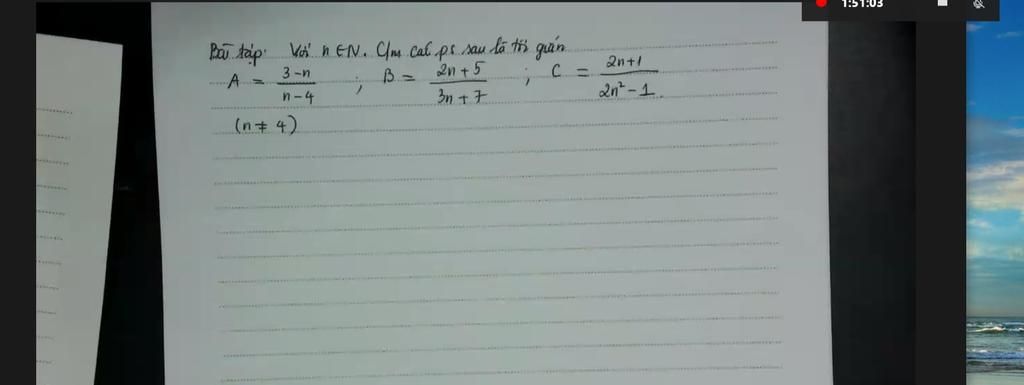 1:51:03
Bài tập: Với n ∈ N. C/m các ps sau là tối giản
A = (3-n)/(n-4) ; B = (2n+5)/(3n+7) ; C = (2n+1)/(2n²-1)
(n ≠ 4)